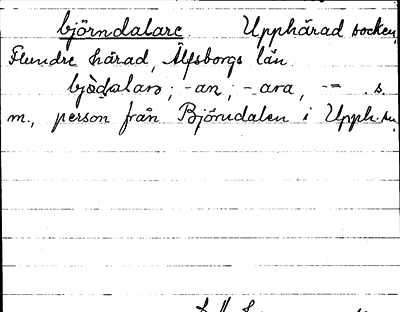 björndalare Upphärad socken,
Flundre härad, Älfsborgs län.
-an; -ara, -= s.
m., person från Björndalen i Upph. sn.